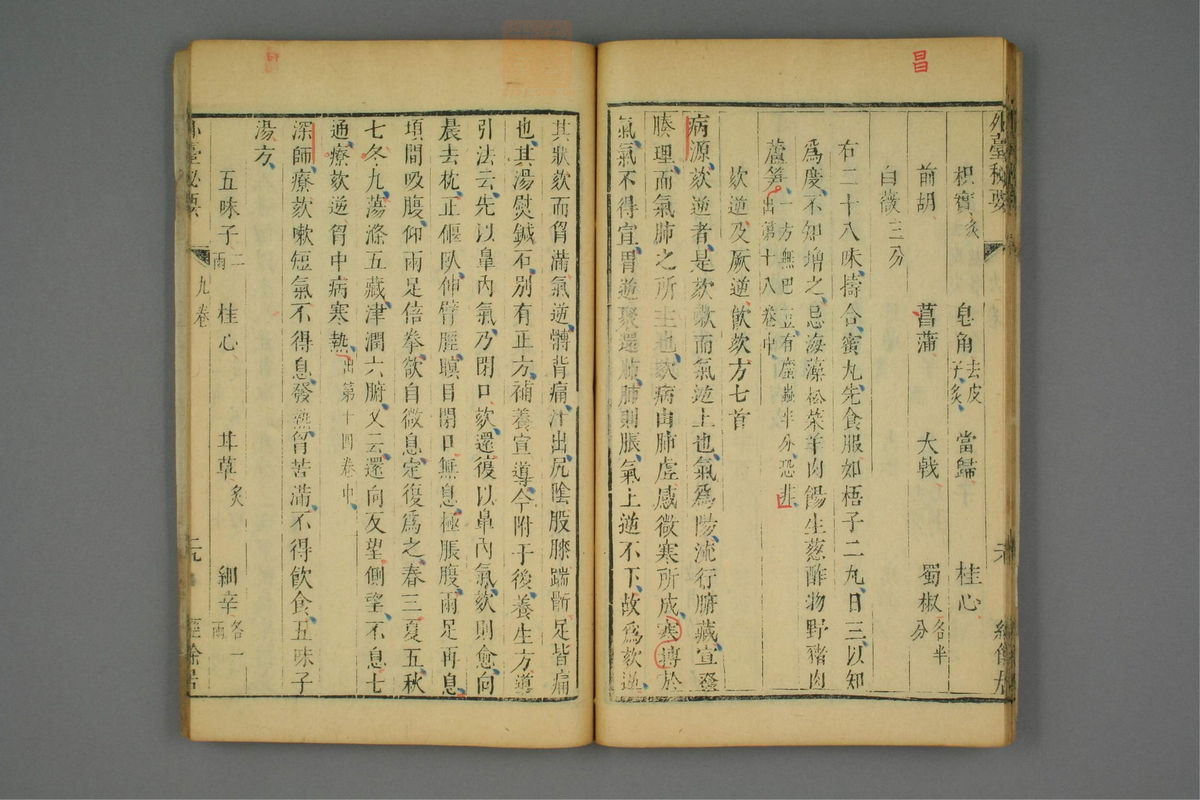 昌
外臺秘要
枳實炙　皂角去皮子炙　當歸　桂心
前胡　菖蒲　大戟　蜀椒各半分
白薇三分
右二十八味擣合蜜丸先食服如梧子二丸日三以知
爲度不知增之忌海藻菘菜羊肉餳生葱酢物野豬肉
蘆笋一方無巴豆有䗪蟲半分恐非出第十八卷中
欬逆及厥逆飲欬方七首
病源欬逆者是欬嗽而氣逆上也氣爲陽流行腑藏宣發
腠理而氣肺之所主也欬病由肺虛感微寒所成寒摶於
氣氣不得宣胃逆聚還肺肺則脹氣上逆不下故爲欬逆
其狀欬而胷滿氣逆髆背痛汗出尻陰股膝踹䯒足皆痛
也其湯熨鍼石別有正方補養宣導今附于後養生方導
引法云先以鼻內氣乃閉口欬還復以鼻內氣欬則愈向
晨去枕正偃臥伸臂脛瞑目閉口無息極脹腹兩足再息
頃間吸腹仰兩足倍拳欲自微息定復爲之春三夏五秋
七冬九蕩滌五藏津潤六腑又云還向反望側望不息七
通療欬逆胷中病寒熱出第十四卷中
深師療欬嗽短氣不得息發熱胷苦滿不得飲食五味子
湯方
五味子二兩　桂心　甘草炙　細辛各一兩
外臺秘要
九卷
經餘居